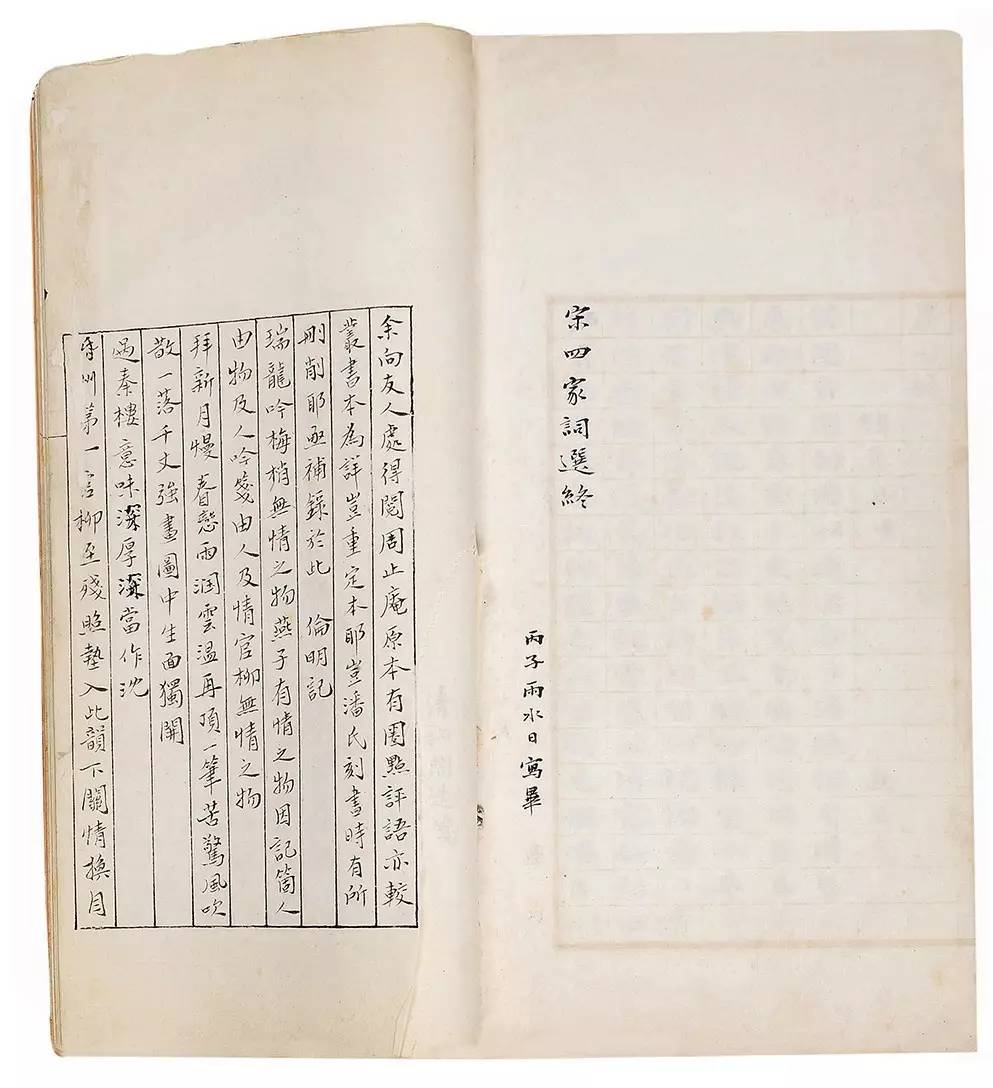 宋四家詞選終
丙子雨水日寫畢
余向友人處得閱周止庵原本有圈點評語亦較
叢書本為詳豈重定本耶豈潘氏刻書時有所
刪削耶亟補錄於此　倫明記
瑞龍吟梅梢無情之物燕子有情之物因記箇人
由物及人吟箋由人及情官柳無情之物
拜新月慢春戀雨潤雲温再頂一筆苦驚風吹
散一落千丈強畫圖中生面獨開
過秦樓意味深厚深當作沈
第一言柳至殘照墊入此韻下關情換月